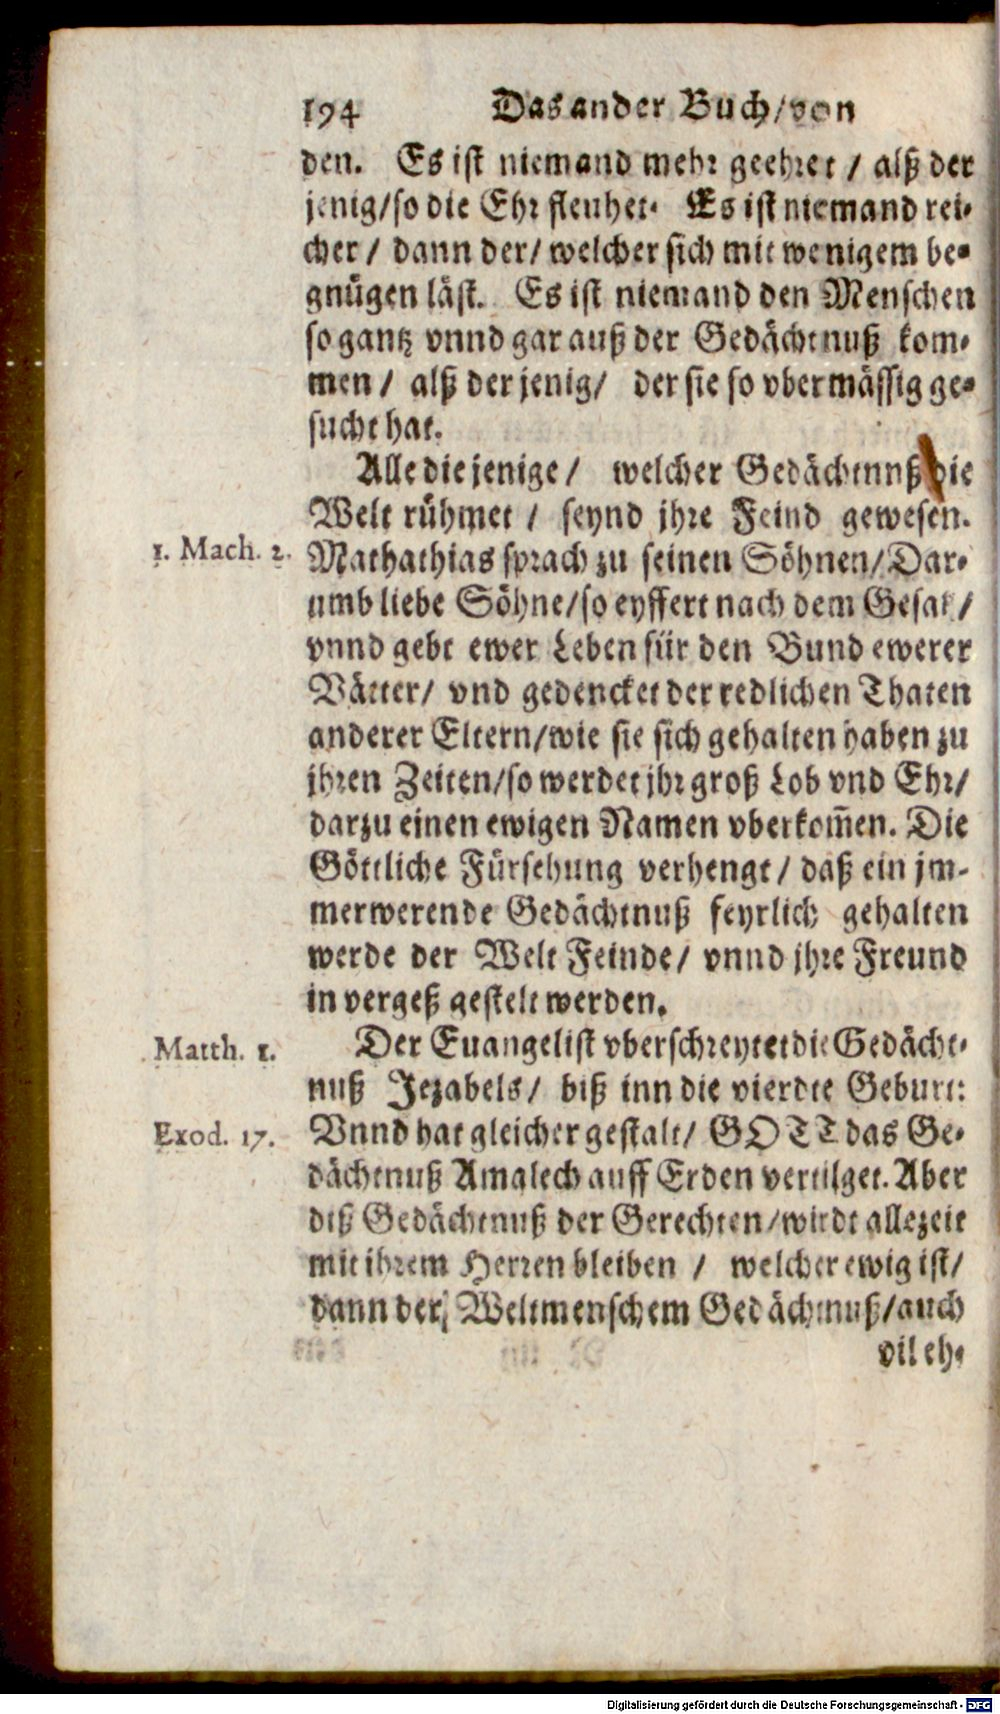 194 Das ander Buch/von
den. Es ist niemand mehr geehret / alß der
jenig/so die Ehr fleuhet. Es ist niemand rei-
cher / dann der/ welcher sich mit wenigem be-
gnügen läst. Es ist niemand den Menschen
so gantz vnnd gar auß der Gedächtnuß kom-
men / alß der jenig/ der sie so vbermässig ge-
sucht hat.
Alle die jenige / welcher Gedächtnuß die
Welt rühmet / seynd jhre Feind gewesen.
1. Mach. 2. Mathathias sprach zu seinen Söhnen/Dar-
umb liebe Söhne/so eyffert nach dem Gesatz/
vnnd gebt ewer Leben für den Bund ewerer
Vätter/ vnd gedencket der redlichen Thaten
anderer Eltern/wie sie sich gehalten haben zu
jhren Zeiten/so werdet jhr groß Lob vnd Ehr/
darzu einen ewigen Namen vberkom̃en. Die
Göttliche Fürsehung verhengt / daß ein jm-
merwerende Gedächtnuß feyrlich gehalten
werde der Welt Feinde/ vnnd jhre Freund
in vergeß gestelt werden.
Matth. 1. Der Euangelist vberschreytet die Gedächt-
nuß Jezabels/ biß inn die vierdte Geburt:
Exod. 17. Vnnd hat gleicher gestalt/ GOTT das Ge-
dächtnuß Amalech auff Erden vertilget. Aber
diß Gedächtnuß der Gerechten/wirdt allezeit
mit ihrem Herren bleiben / welcher ewig ist/
dann der Weltmenschem Gedächtnuß/auch
vil eh-
Digitalisierung gefördert durch die Deutsche Forschungsgemeinschaft - DFG